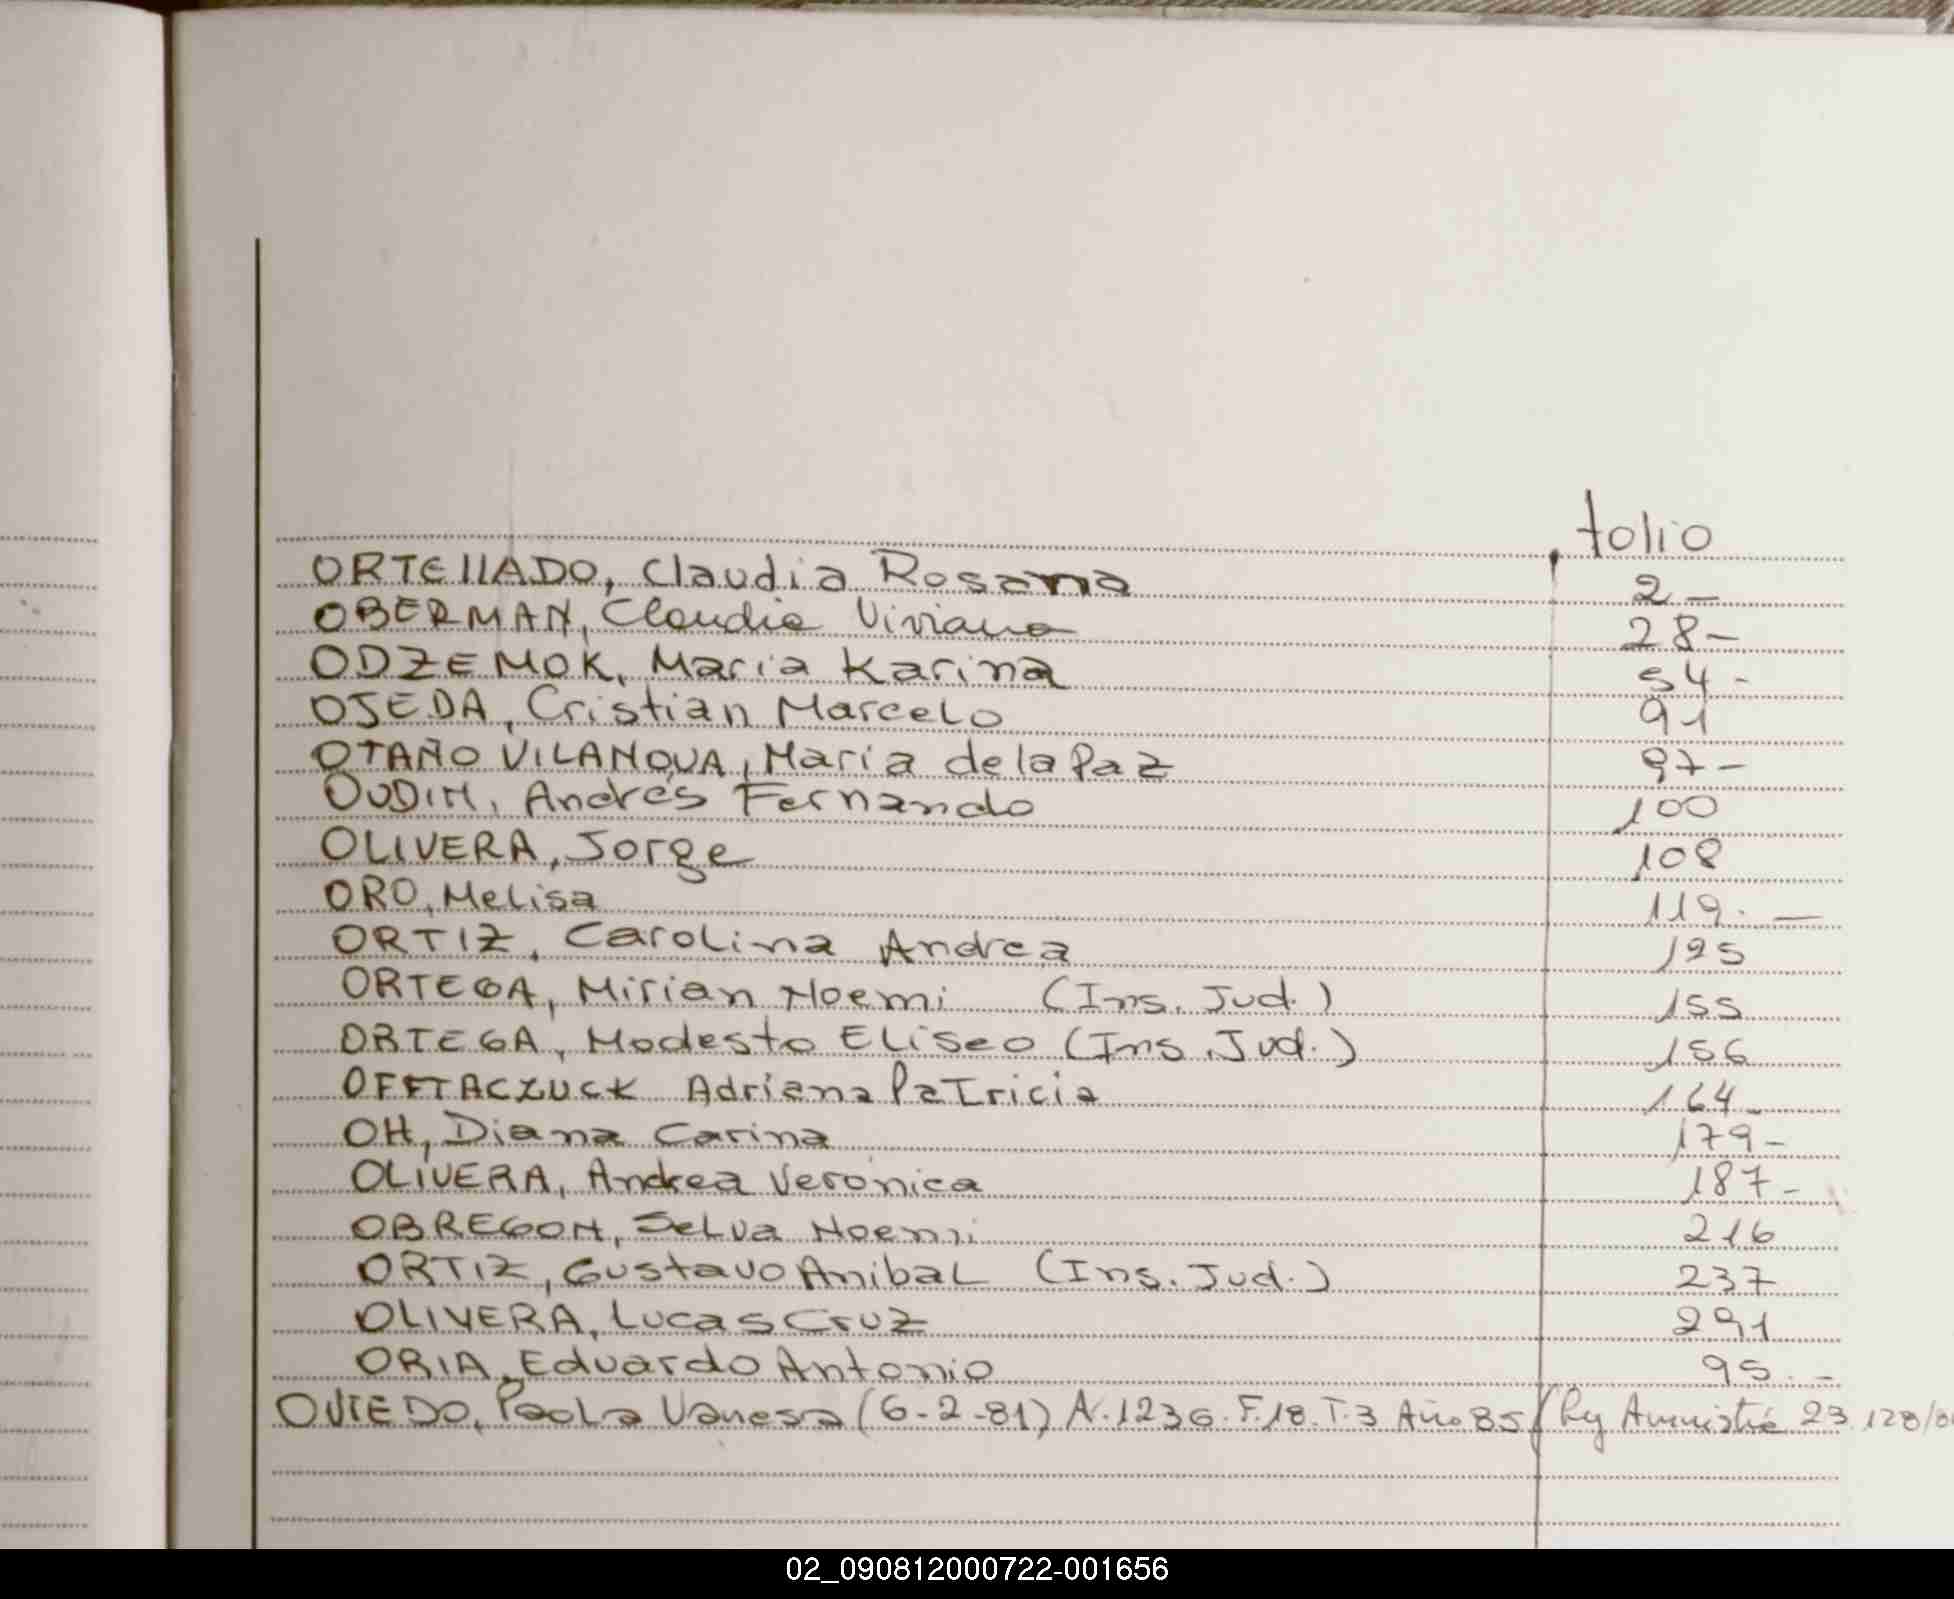 folio
ORTEllADO, Claudia Rosana 2 -
OBERMAN, Claudia Viviana 28 -
ODZEMOK, Maria Karina 54 -
OJEDA, Cristian Marcelo 91
OTAÑO VILANOVA, Maria de la Paz 97 -
OUDIN, Andrés Fernando 100
OLIVERA, Jorge 108
ORO, Melisa 119. —
ORTIZ, Carolina Andrea 125
ORTEGA, Mirian Noemi (Ins. Jud.) 155
ORTEGA, Modesto Eliseo (Ins. Jud.) 156
OFFTACZUCK Adriana Patricia 164 -
OH, Diana Carina 179 -
OLIVERA, Andrea Verónica 187 -
OBREGON, Selva Noemi 216
ORTIZ, Gustavo Anibal (Ins. Jud.) 237
OLIVERA, Lucas Cruz 291
ORIA, Eduardo Antonio 95. -
OVIEDO, Paola Vanesa (6-2-81) N. 1236. F. 18. T. 3 Año 85 (Ley Amnistía 23.128/
02_090812000722-001656